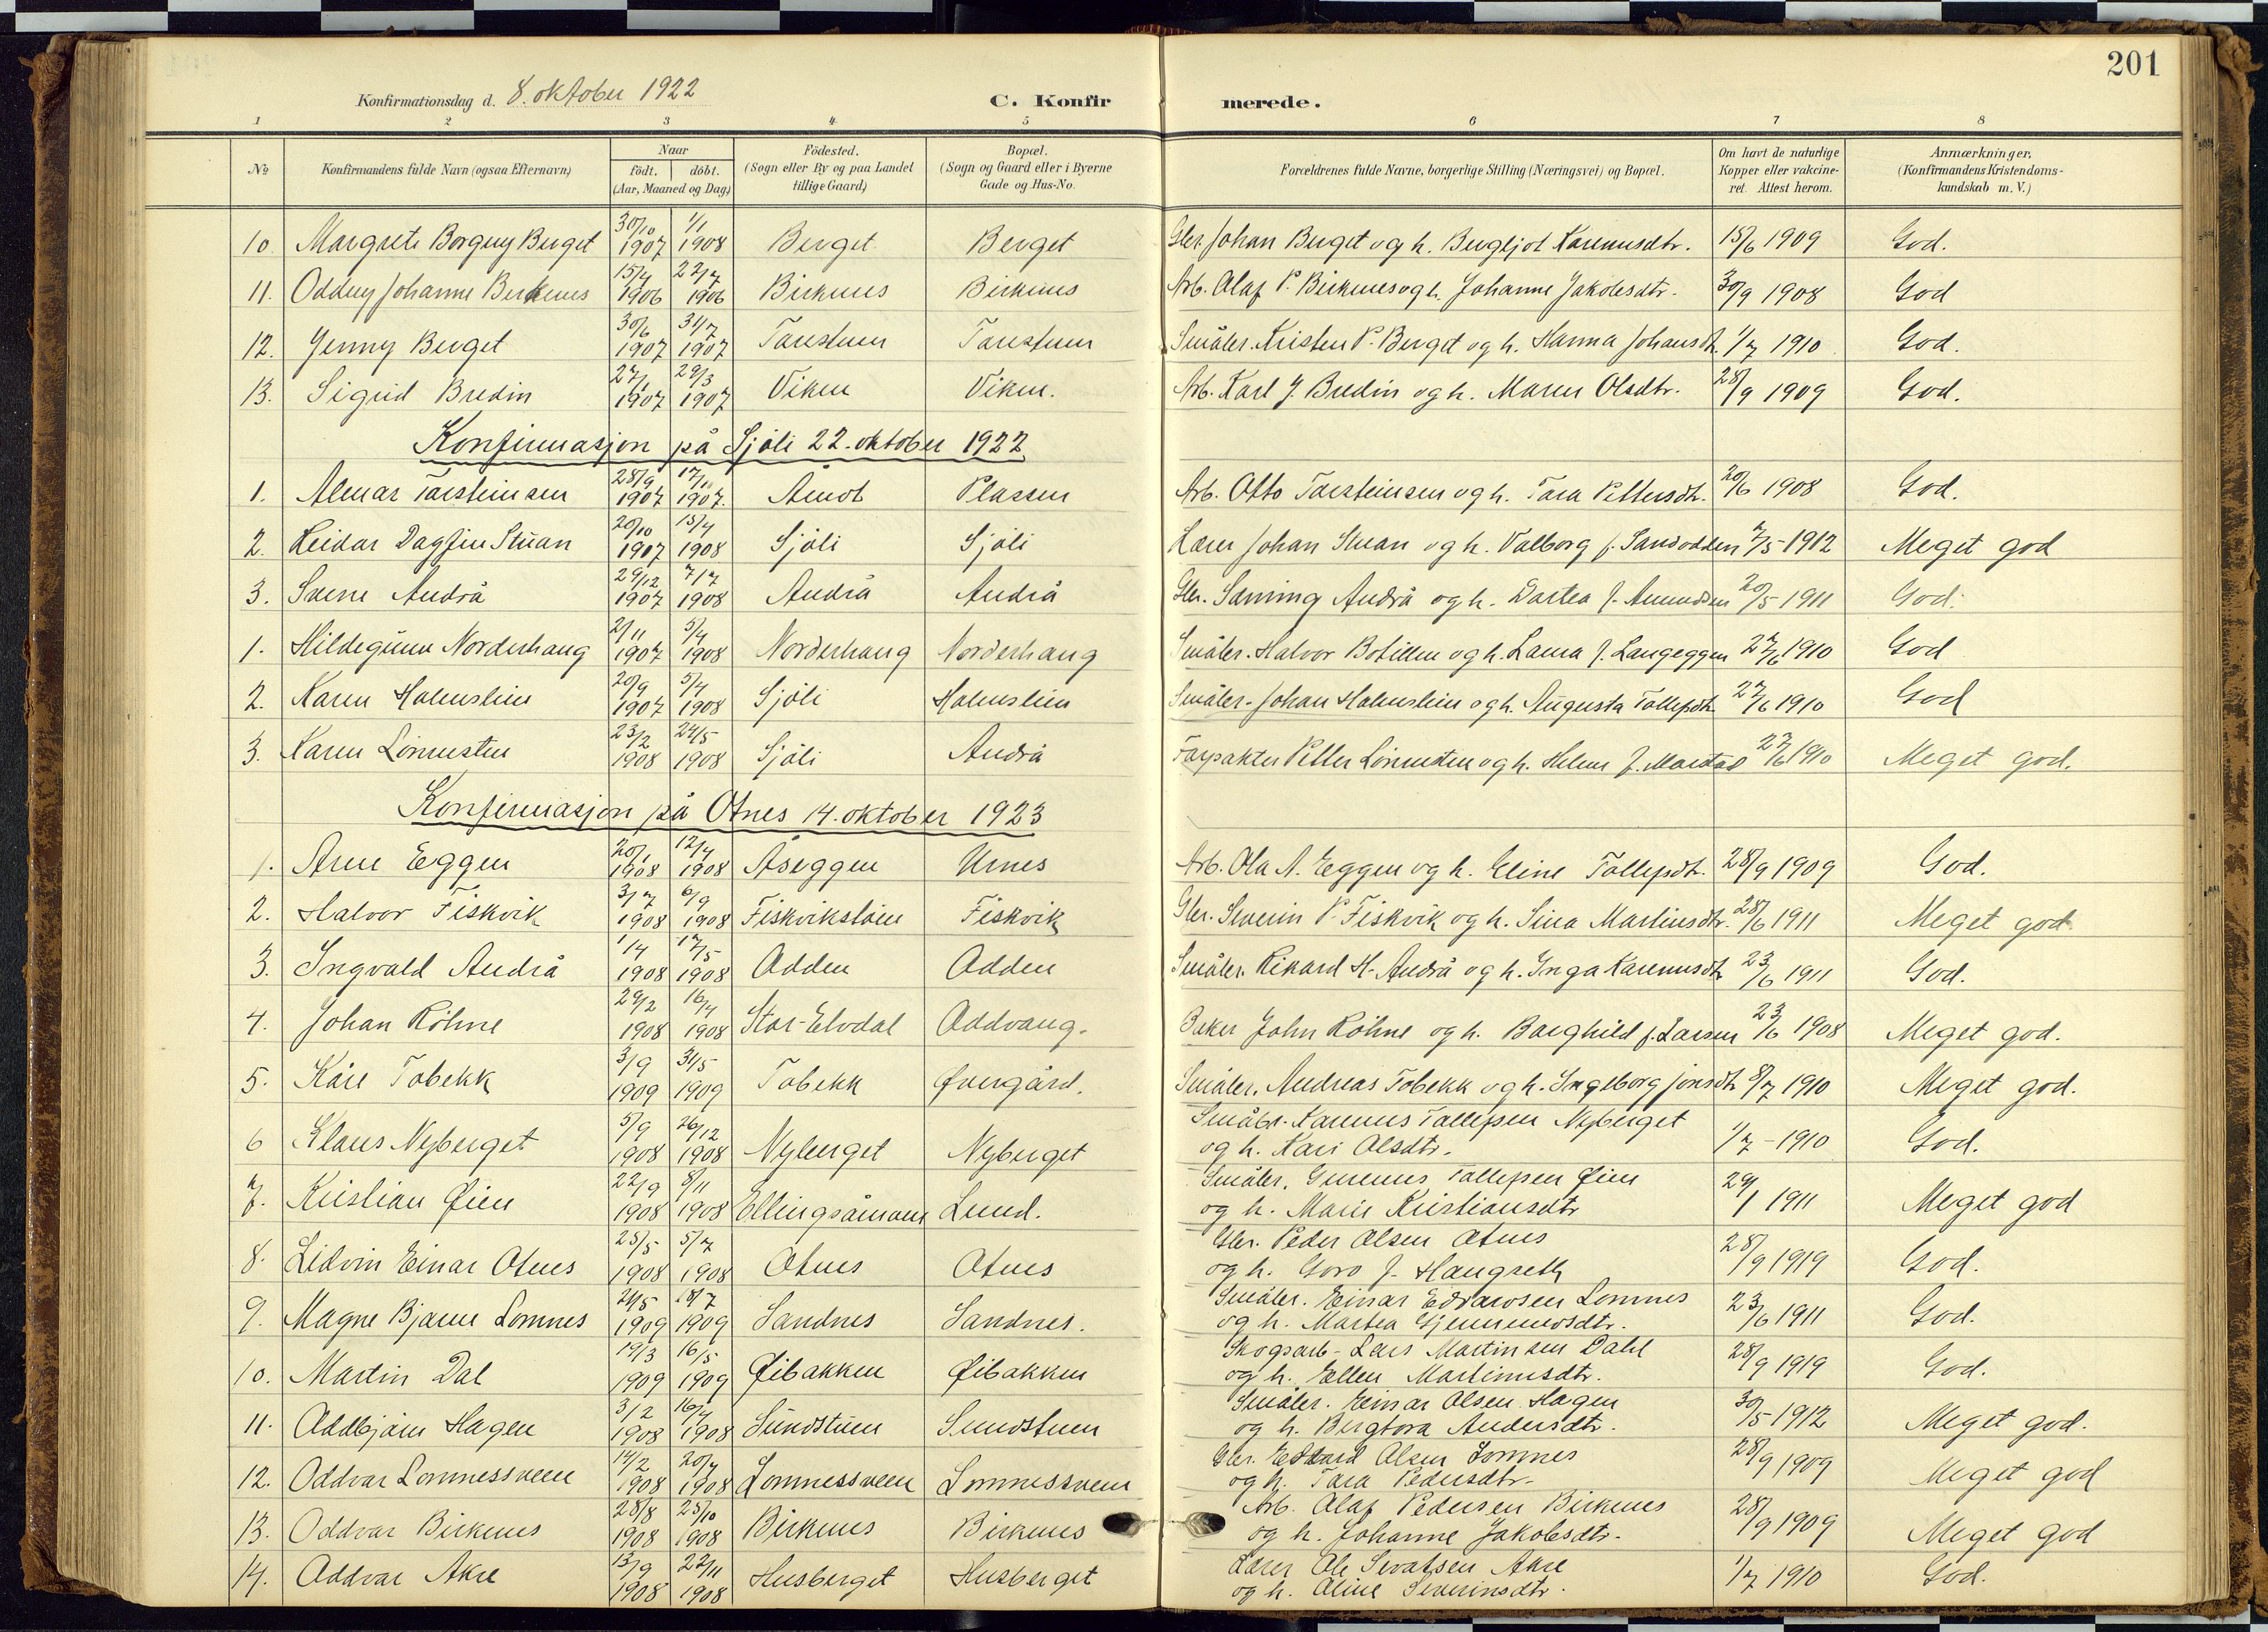 201
Konfirmationsdag d. 8. oktober 1922
C. Konfirmerede.
1 2 3 4 5 6 7 8
No
Konfirmandens fulde Navn (ogsaa Efternavn)
Naar
födt. döbt.
(Aar, Maaned og Dag)
Födested.
(Sogn eller By og paa Landet
tillige Gaard)
Bopæl.
(Sogn og Gaard eller i Byerne
Gade og Hus-No.
Forældrenes fulde Navne, borgerlige Stilling (Næringsvei) og Bopæl.
Om havt de naturlige
Kopper eller vakcine-
ret. Attest herom.
Anmærkninger.
(Konfirmandens Kristendoms-
kundskab m. V.)
10. Margrete Borgny Berget 30/10 1907 1/1 1908 Berget Berget Gbr. Johan Berget og h. Bergljot Karenusdtr. 15/6 1909 God.
11. Oddny Johanne Birkenes 15/4 1906 22/7 1906 Birkenes Birkenes Arb. Olaf P. Birkenes og h. Johanne Jakobsdtr. 30/9 1908 God
12. Jenny Berget 30/6 1907 31/7 1907 Småbr. Kristen P. Berget og h. Hanna Johansdt. 1/7 1910 God.
13. Sigrid Bredin 27/1 1907 29/3 1907 Viken Viken. Arb. Karl J. Bredin og h. Maren Olsdtr. 28/9 1909 God.
Konfirmasjon på Sjöli 22. oktober 1922
1. Almar Torsteinsen 28/9 1907 17/11 1907. Åmot Plassen Arb. Otto Torsteinsen og h. Tora Pettersdt. 20/6 1908 God.
2. Reidar Dagfin Stuan 20/10 1907 15/4 1908 Sjöli Sjöli Lærer Johan Stuan og h. Valborg f. Sandodden 7/5 1912 Meget god
3. Sverre Andrå 29/12 1907 7/7 1908 Andrå Andrå Gbr. Sæming Andrå og h. Dortea f. Amundsen 20/5 1911 God.
1. Hildegunn Norderhaug 2/11 1907 5/4 1908 Norderhaug Norderhaug Småbr. Halvor Botillen og h. Laura f. Langeggen 27/6 1910 God
2. Karen Holmslien 20/9 1907 5/4 1908 Sjöli Holmslien Småbr. Johan Holmslien og h. Augusta Tollefsdt. 27/6 1910 God
3. Karen Lönnsten 23/2 1908 24/5 1908 Sjöli Andrå Forpakter Petter Lönnsten og h. Helene f. 27/6 1910 Meget god.
Konfirmasjon på Otnes 14. oktober 1923
1. Arne Eggen 20/1 1908 12/4 1908 Åseggen Urnes Arb. Ola A. Eggen og h. Eline Tollefsdt. 28/9 1909 God.
2. Halvor Fiskvik 3/7 1908 6/9 1908 Fiskvikslöen Fiskvik Gbr. Severin P. Fiskvik og h. Sina Martinsdtr. 28/6 1911 Meget god
3. Ingvald Andrå 1/4 1908 17/5 1908 Odden Odden Småbr. Rikard H. Andrå og h. Inga Karenusdt. 23/6 1911 God.
4. Johan Röhne 29/2 1908 16/4 1908 Stor-Elvdal Oddvang. Baker John Röhne og h. Borghild f. Larsen 23/6 1908 Meget god.
5. Kåre Tobekk 3/9 1909 31/5 1909 Tobekk Övergård. Småbr. Andreas Tobekk og h. Ingeborg Jonsdt. 8/7 1910 Meget god.
6 Klaus Nyberget 5/9 1908 26/12 1908 Nyberget Nyberget Småbr. Karenus Tollefsen Nyberget
og h. Kari Olsdtr. 1/7 - 1910 God.
7. Kristian Øien 22/9 1908 8/11 1908 Ellingsåmoen Lund. Småbr. Gunnus Tollefsen Øien
og h. Marie Kristiansdtr 29/1 1911 Meget god
8. Lidvin Einar Otnes 25/5 1908 5/7 1908 Otnes Otnes Gbr. Peder Olsen Otnes
og h. Goro f. Haugseth 28/9 1919 God.
9. Magne Bjarne Lomnes 24/5 1909 18/7 1909 Sandnes Sandnes. Småbr. Einar Edvardsen Lomnes
og h. Martea 23/6 1911 God.
10. Martin Dal 19/3 1909 16/5 1909 Øibakken Øibakken Skogsarb. Lars Martinsen Dahl
og h. Ellen Martinusdtr. 28/9 1919 God.
11. Oddbjörn Hagen 3/2 1908 16/4 1908 Sundstuen Sundstuen Småbr. Einar Olsen Hagen
og h. Bergtora Andersdtr. 30/5 1912 Meget god.
12. Oddvar Lomnessveen 14/2 1908 20/4 1908 Lomnessveen Lomnessveen Gbr. Edvard Olsen Lomnes
og h. Tora Pedersdtr. 28/9 1909 Meget god
13. Oddvar Birkenes 28/8 1908 25/10 1908 Birkenes Birkenes Arb. Olaf Pedersen Birkenes
og h. Johanne Jakobsdtr. 28/9 1909 Meget god
14. Oddvar Akre 13/9 1908 22/11 1908 Husberget Husberget Lærer Ole Sivatsen Akre
og h. Oline Severinsdtr. 1/7 1910 God.